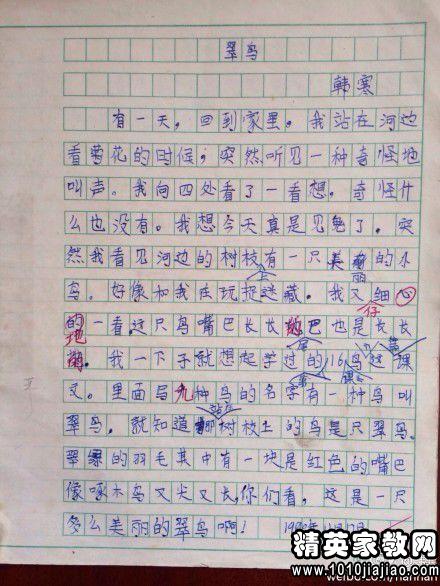 翠鸟
韩寒
有一天，回到家里。我站在河边
看菊花的时候，突然听见一种奇怪地
叫声。我向四处看了一看想。奇怪什
么也没有。我想今天真是见鬼了。突
然我看见河边的树枝有一只美丽的小
上
鸟。好像和我在玩捉迷藏。我又细心
仔
地一看这只鸟嘴巴长长尾巴也是长长
的。我一下子就想起学过的《16鸟》这课
第 课
文。里面写九种鸟的名字有一种鸟叫
翠鸟。就知道 树枝上的鸟是只翠鸟。
站在
翠绿的羽毛其中有一块是红色的嘴巴
像啄木鸟又尖又长,你们看，这是一只
多么美丽的翠鸟啊!
精英家教网
www.1010jiajiao.com